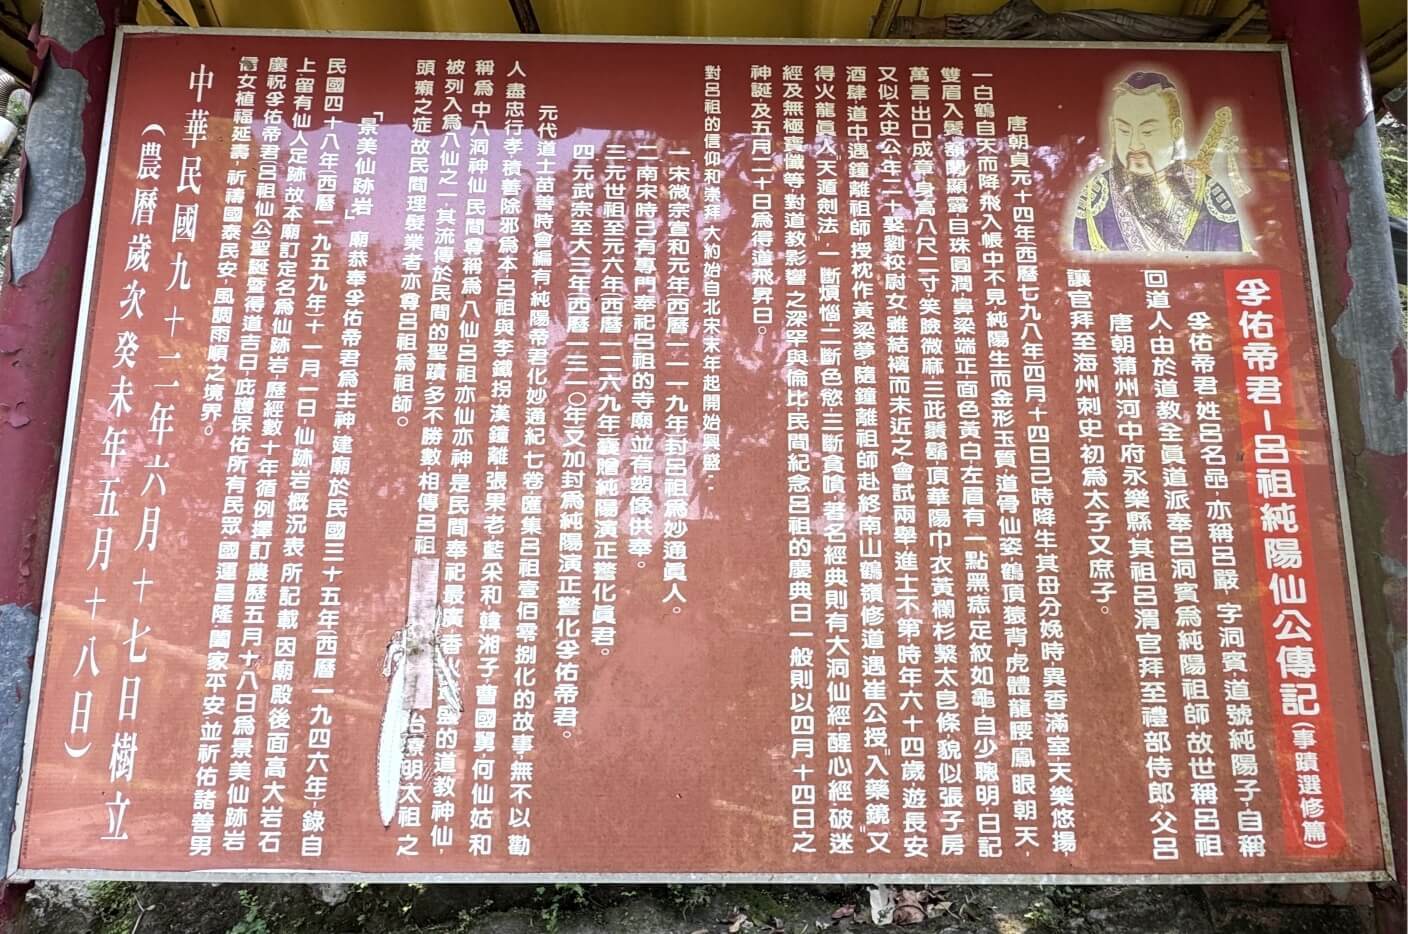 孚佑帝君－呂祖純陽仙公傳記(事蹟選修篇)
孚佑帝君，姓呂名喦，亦稱呂嚴，字洞賓，道號純陽子，自稱
回道人，由於道教全眞道派奉呂洞賓為純陽祖師，故世稱呂祖
唐朝蒲州河中府永樂縣，其祖呂渭官拜至禮部侍郎，父呂
讓官拜至海州刺史，初為太子又庶子。
唐朝貞元十四年西曆七九八年四月十四日己時降生，其母分娩時，異香滿室，天樂悠揚，
一白鶴自天而降，飛入帳中不見，純陽生而金形玉質，道骨仙姿，鶴頂猿背，虎體龍腰，鳳眼朝天，
雙眉入鬢，額闊顯露，白珠圓潤，鼻梁端正，面色黃白，左眉有一點黑痣，足紋如龜，自少聰明，日記
萬言，出口成章，身高八尺二寸，笑臉微麻，三此鬚鬍，頂華陽巾，衣黃欄杉，繫太皀條，貌似張子房
又似太史公，年二十娶劉校尉女，雖結褵而未近之，會試兩舉，進士不第，時年六十四歲，遊長安
酒肆道中遇鐘離祖師，授枕作黃梁夢，隨鐘離祖師赴終南山鶴嶺修道，遇崔公授〝入藥鏡〞，又
得火龍眞人〝天遁劍法〞，一斷煩惱，二斷色慾，三斷貪嗔，著名經典則有大洞仙經，醒心經，破迷
經及無極寶懺等，對道教影響之深罕與倫比，民間紀念呂祖的慶典日一般則以四月十四日之
神誕及五月二十日為得道飛昇日。
對呂祖的信仰和崇拜，大約始自北宋末年起開始興盛。
一宋徽宗宣和元年西曆一一一九年封呂祖為妙通眞人。
二南宋時己有專門奉祀呂祖的寺廟，並有塑像供奉。
三元世祖至元六年西曆一二六九年襄贈純陽演正警化眞君。
四元武宗至大三年西曆一三一〇年又加封為純陽演正警化孚佑帝君。
元代道士苗善時會編有純陽帝君化妙通紀七卷，匯集呂祖壹佰零捌化的故事，無不以勸
人盡忠行孝，積善除邪為本，呂祖與李鐵拐、漢鐘離、張果老、藍采和、韓湘子、曹國舅、何仙姑和
稱為中八洞神仙，民間尊稱為八仙，呂祖亦仙亦神，是民間奉祀最廣，香火　盛的道教神仙，
被列入為八仙之一，其流傳於民間的聖蹟多不勝數，相傳呂祖　治療明太祖之
頭癩之症，故民間理髮業者亦尊呂祖為祖師。
「景美仙跡岩」廟恭奉孚佑帝君為主神，建廟於民國三十五年(西曆一九四六年)，錄自
民國四十八年(西曆一九五九年)十一月一日，仙跡岩概況表所記載，因廟殿後面高大岩石
上留有仙人足跡，故本廟訂定名為仙跡岩，歷經數十年循例擇訂農歷五月十八日為景美仙跡岩
慶祝孚佑帝君呂祖仙公聖誕暨得道吉日，庇護保佑所有民眾，國運昌隆，闔家平安，並祈佑諸善男
信女植福延壽，祈禱國泰民安，風調雨順之境界。
中華民國九十二年六月十七日樹立
(農曆歲次癸未年五月十八日)